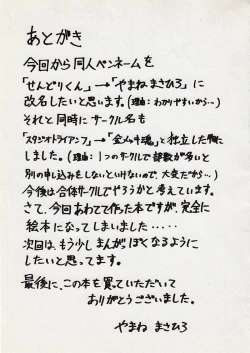 あとがき
今回から同人ペンネームを
「せんどりくん」→「やまねまさひろ」に
改名したいと思います。(理由:わかりやすいから…)
それと同時にサークル名も
「スタジオトライアンフ」→「金メッキ魂」と独立した形に
しました。(理由:1つのサークルで部数が多いと
別の申し込みをしないといけないので、大変だから…)
今後は合体サークルでやろうかと考えています。
さて、今回あわてて作った本ですが、完全に
絵本になってしまいました・・・・・
次回は、もう少しまんがぽくなるように
したいと思ってます。
最後に、この本を買っていただいて
ありがとうございました。
やまね まさひろ